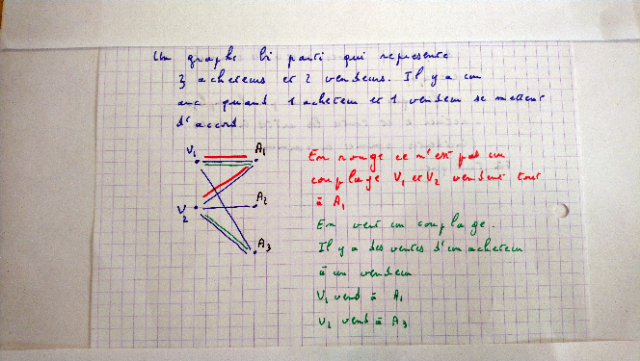 Un graphe bi parti qui represente
3 acheteurs et 2 vendeurs. Il y a un
arc quand 1 acheteur et 1 vendeur se mettent
d'accord.
V1 A1
V2 A2
A3
En rouge ce n'est pas un
couplage V1 et V2 vendent tout
à A1
En vert un couplage.
Il y a des ventes d'un acheteur
à un vendeur
V1 vend à A1
V2 vend à A3